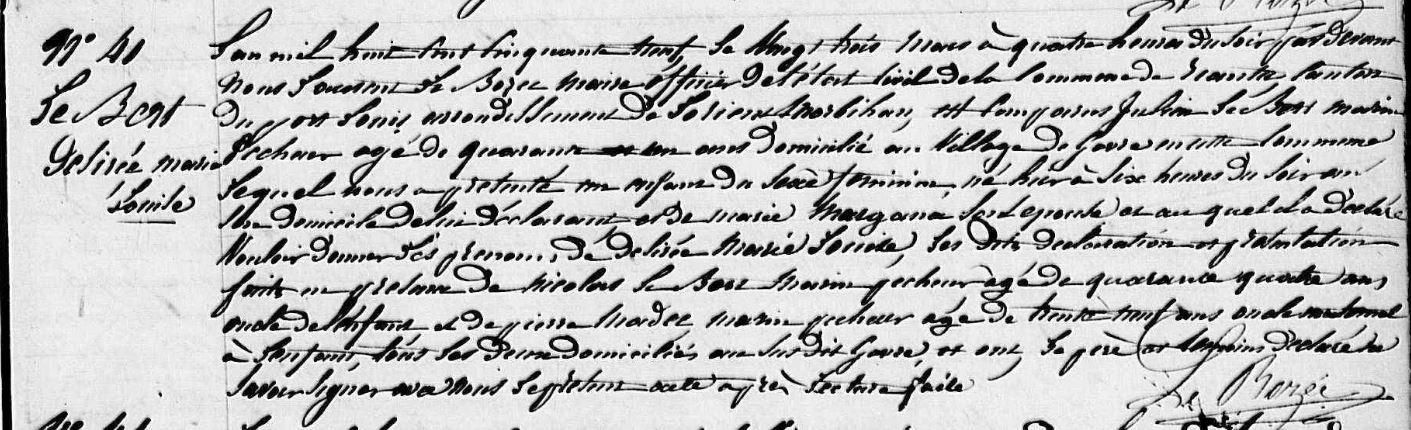 N° 41
Le Bort
Désirée marie
Louise
L'an mil huit cent cinquante neuf, le Vingt trois mars à quatre heures du soir par devant
nous Le Bozec maire officier de l'état civil de la commune de riantec canton
du port Louis arrondissement de Lorient Morbihan, est comparu Julien Le Bort marin
Pecheur agé de quarante et un ans domicilié au Village de Gavre en cette commune
Lequel nous a présenté un enfant du sexe féminin, né hier à six heures du soir au
domicile de lui déclarant et de marie épouse et au quel il a déclaré
Vouloir donner les prenoms de désirée Marie Louise, les dites declaration et présentation
faites en présence de nicolas le Bort marin pecheur agé de quarante quatre ans
oncle de l'enfant et de pierre Madec marin pecheur agé de trente neuf ans oncle maternel
à l'enfant, tous les deux domiciliés au susdit Gavre, et ont, le père et témoins déclaré ne
Savoir signer avec nous le présent acte après lecture faite
Le Bozec